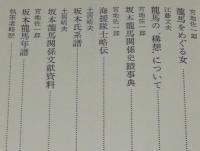 龍馬をめぐる女………
宮地佐一郎
龍馬の「構想」について………
江藤文夫
坂本龍馬関係史蹟事典………
宮地佐一郎
海援隊士略伝………
土居晴夫
坂本氏系譜………
土居晴夫
坂本龍馬関係文献資料………
宮地佐一郎
坂本龍馬年譜………
執筆者略歴